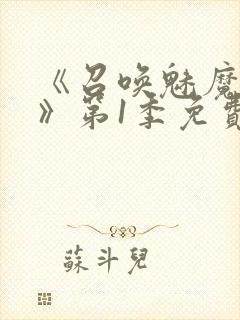 《召唤魅魔
》第1季免費
蘇斗兒